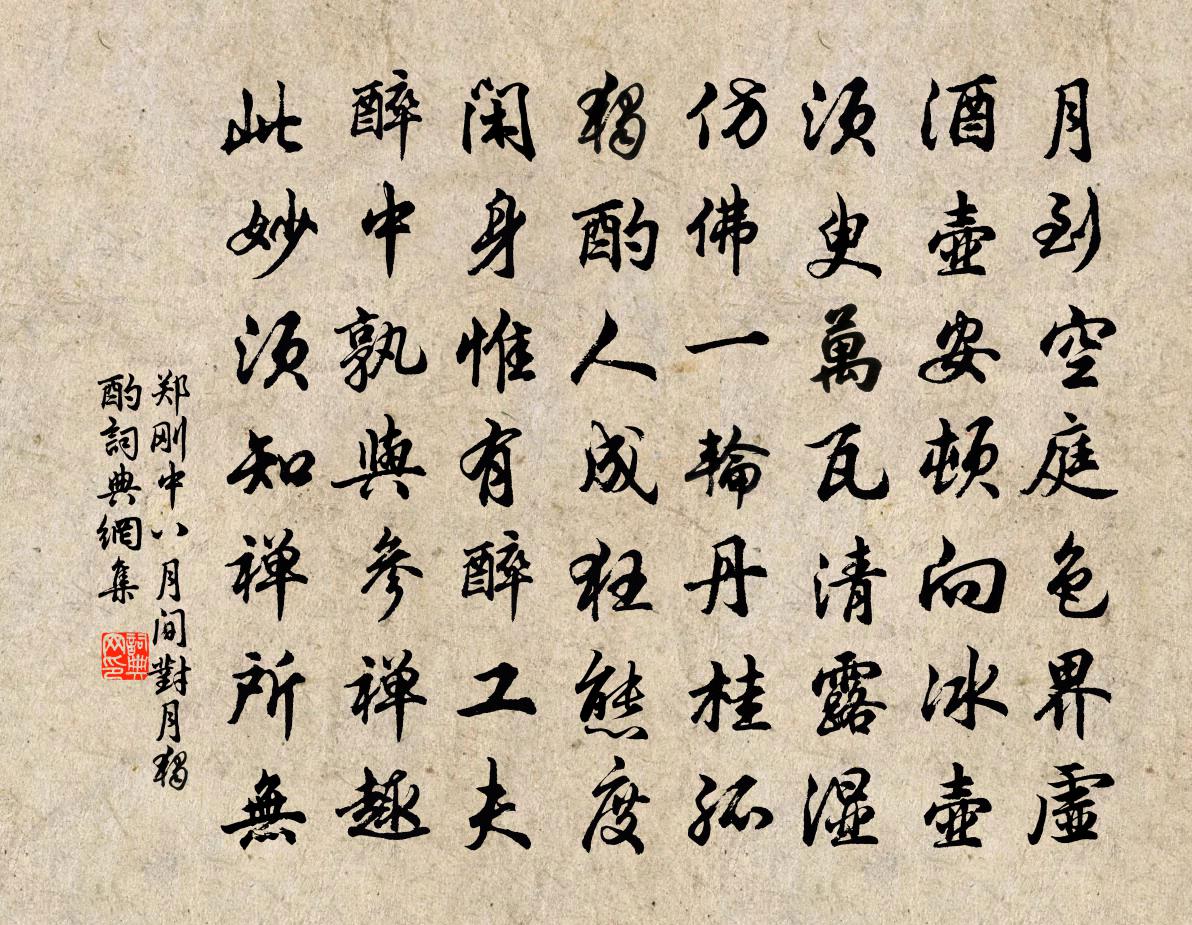 月到空庭色界虛
酒壺安頓向冰壺
須臾萬瓦清露湿
仿佛一輪丹桂孤
獨酌人成狂態度
闲身惟有醉工夫
醉中孰與參禅趣
此妙須知禅所無
郑刚中八月间對月獨
酌詞典網集
詞典
网印